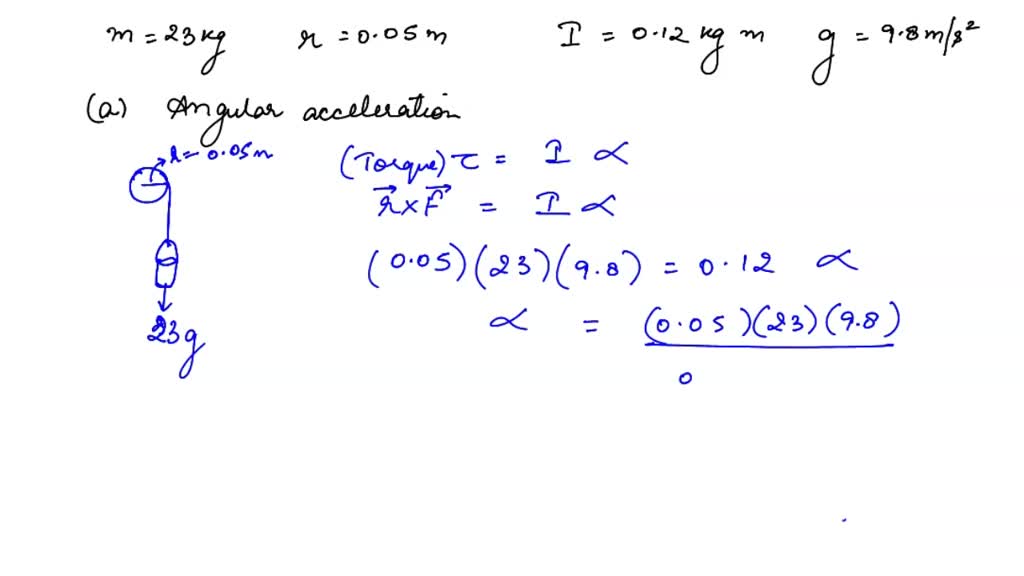 m = 23 kg r = 0.05 m I = 0.12 kg m g = 9.8 m/s²
(a) Angular acceleration
r = 0.05 m
(Torque) τ = I α
r⃗ × F⃗ = I α
(0.05)(23)(9.8) = 0.12 α
α = (0.05)(23)(9.8)
0
23g